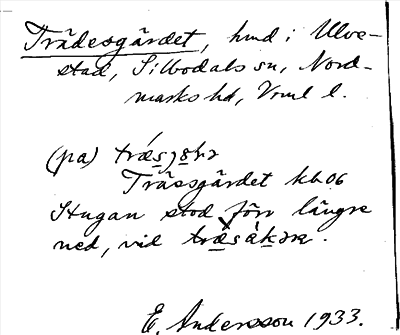 Trädesgärdet, hmd i Ulve-
stad, Silbodals sn, Nord-
marks hd, Vrml l.
(pa)
Träsgärdet kh 06
Stugan stod förr längre
ned, vid
E. Andersson 1933.